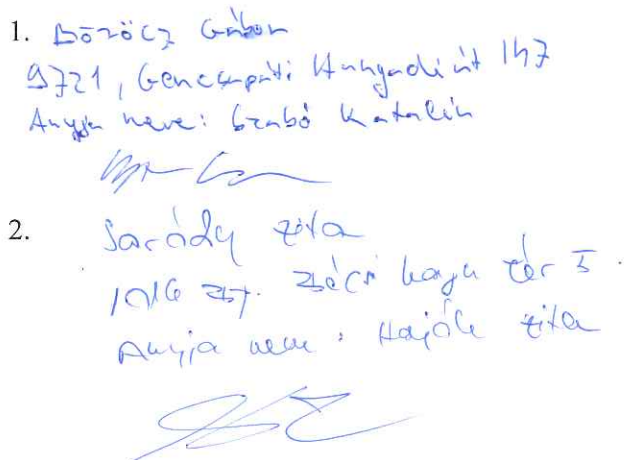 1. Böröcz Gábor
9721, Gencsapáti Hunyadi út 147
Anyja neve: Szabó Katalin
2. Saródy Zita
1016 Bp. Bécsi kapu tér 5.
Anyja neve: Hajók Zita